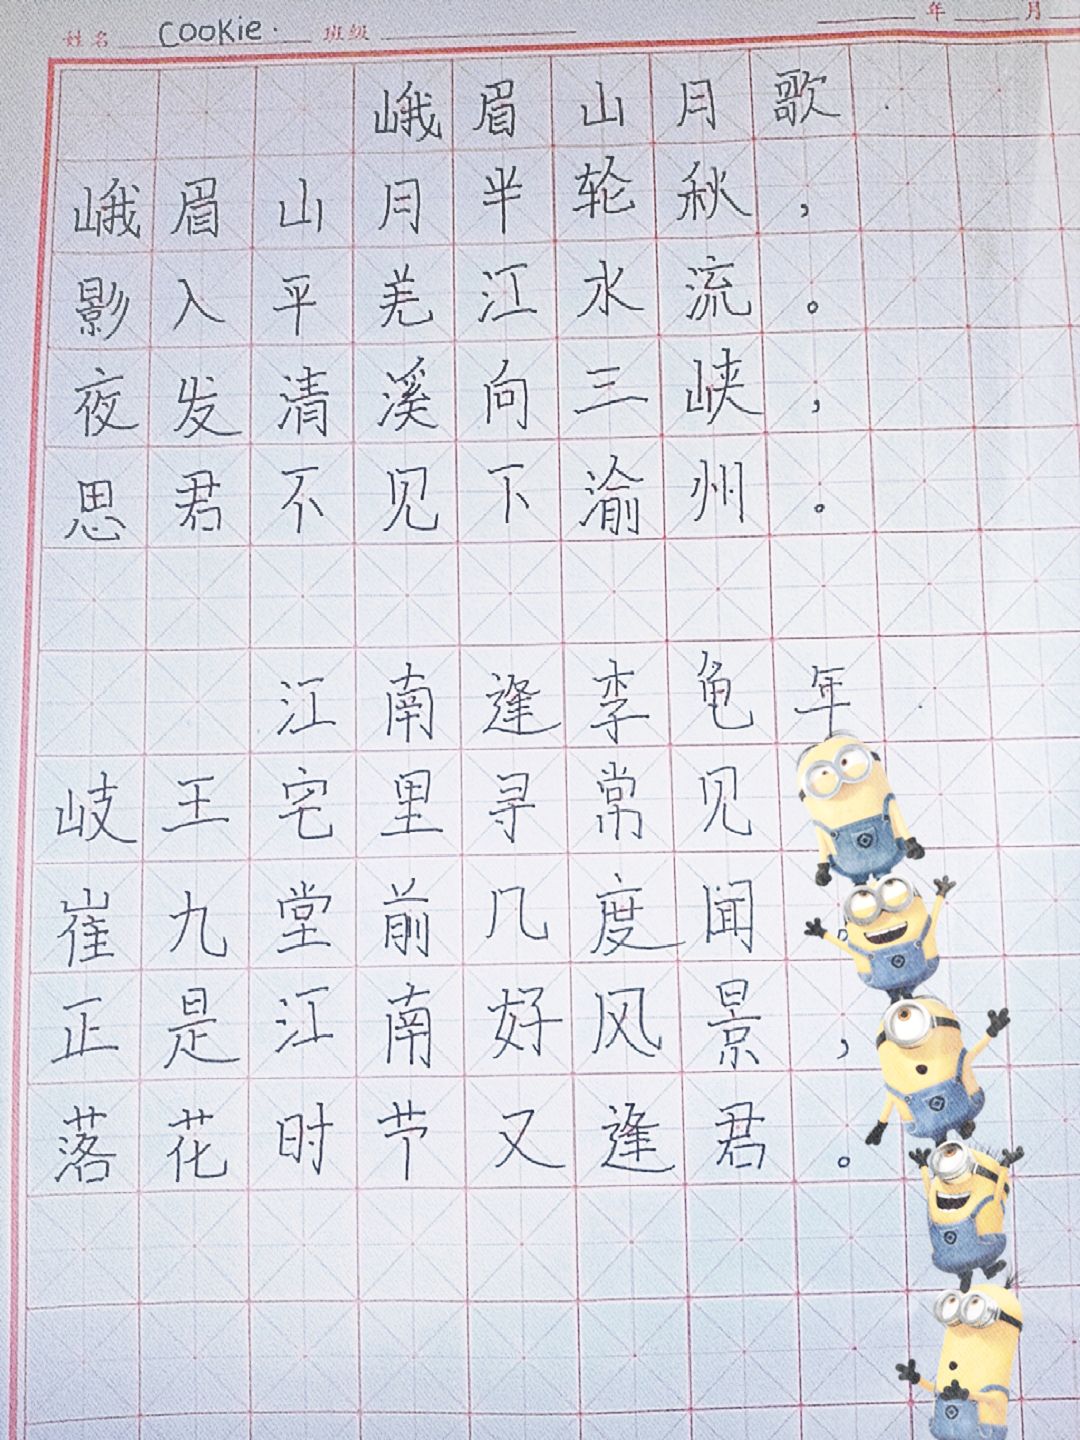 姓名 Cookie. 班级 年 月
峨眉山月歌.
峨眉山月半轮秋，
影入平羌江水流。
夜发清溪向三峡，
思君不见下渝州。
江南逢李龟年.
岐王宅里寻常见
崔九堂前几度闻。
正是江南好风景，
落花时节又逢君。